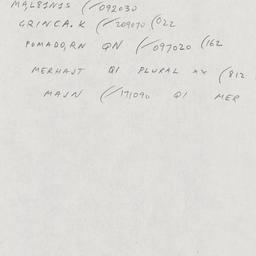 MAL81N1S (/092030
GRINCA.K (/209070 (022
POMADO,RN QN (/097020 (162
MERHAST QI PLURAL XX (812
MAJN (/191090 QI MER